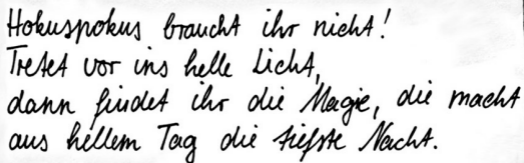 Hokuspokus braucht ihr nicht!
Tretet vor ins helle Licht,
dann findet ihr die Magie, die macht
aus hellem Tag die tiefste Nacht.